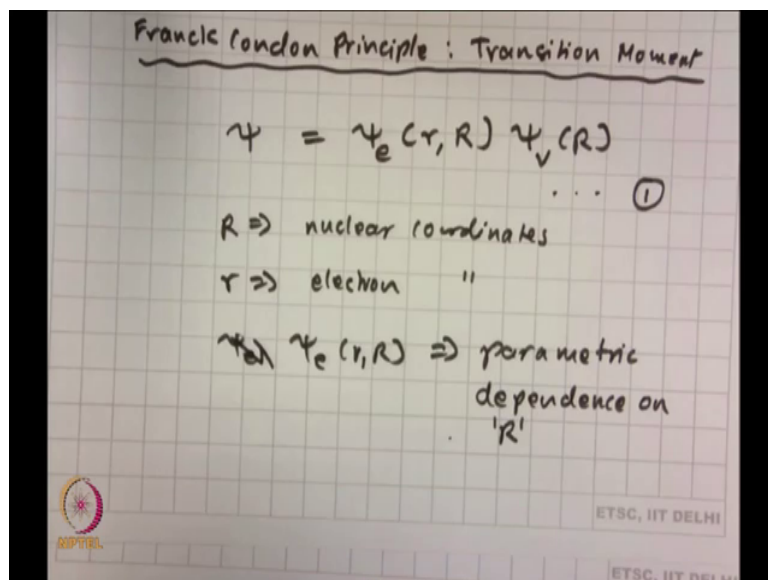 Franck Condon Principle : Transition Moment
ψ = ψe (r, R) ψv (R)
... ①
R ⇒ nuclear coordinates
r ⇒ electron "
ψe (r, R) ⇒ parametric
dependence on
'R'
ETSC, IIT DELHI
NPTEL
ETSC, IIT DELHI